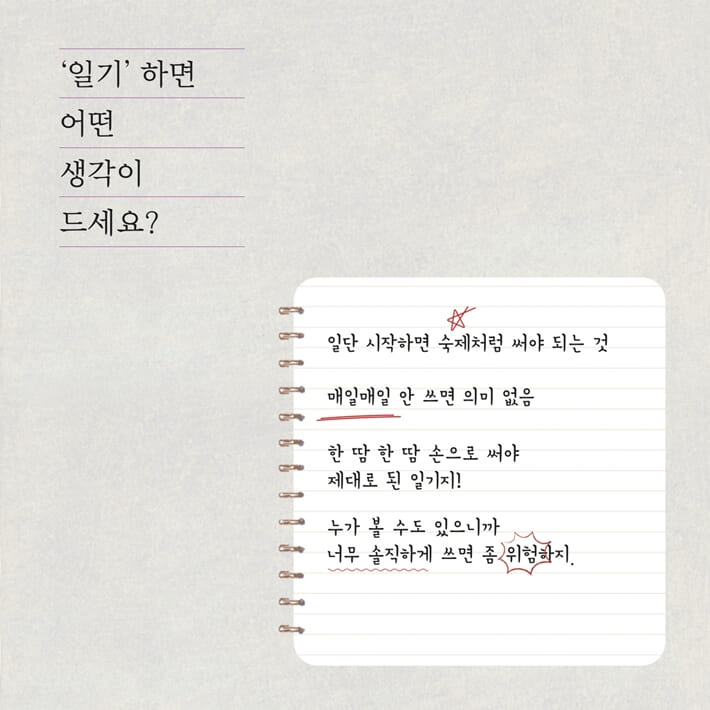 ‘일기’ 하면
어떤
생각이
드세요?
일단 시작하면 숙제처럼 써야 되는 것
매일매일 안 쓰면 의미 없음
한 땀 한 땀 손으로 써야
제대로 된 일기지!
누가 볼 수도 있으니까
너무 솔직하게 쓰면 좀 위험하지.